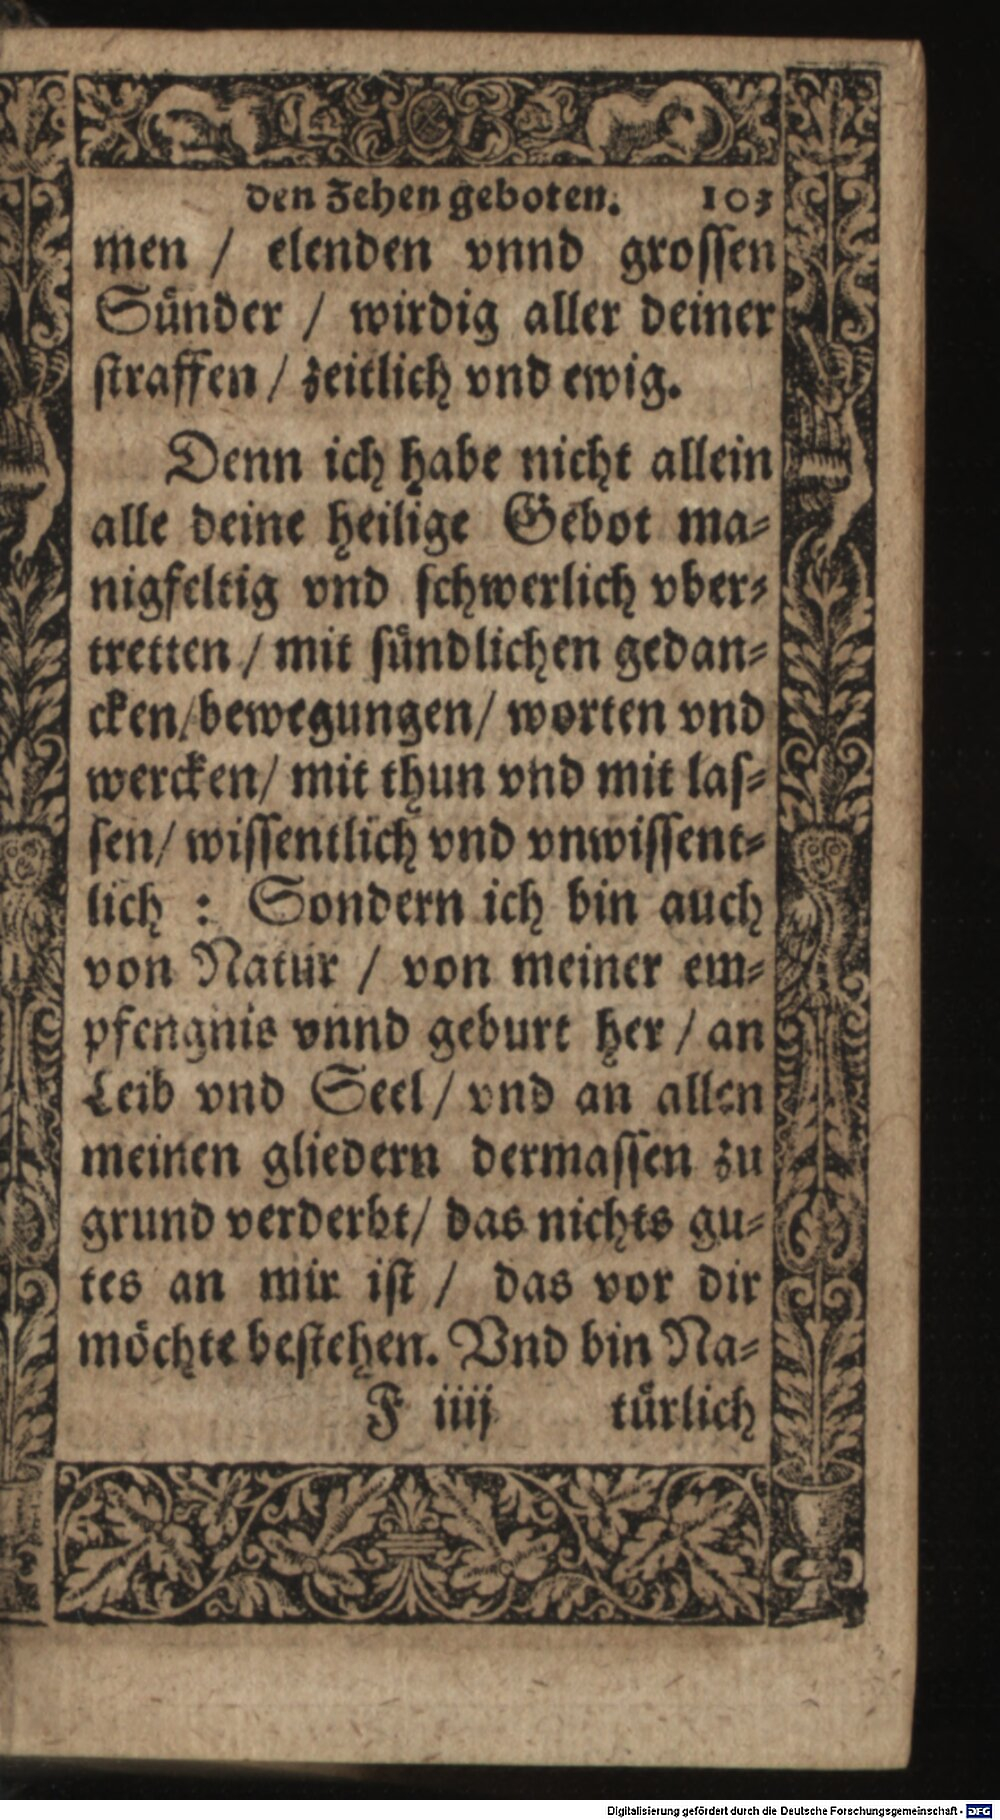 den Zehen geboten. 103
men / elenden vnnd grossen
Sünder / wirdig aller deiner
straffen / zeitlich vnd ewig.
Denn ich habe nicht allein
alle deine heilige Gebot ma-
nigfeltig vnd schwerlich vber-
tretten / mit sündlichen gedan-
cken/ bewegungen/ worten vnd
wercken/ mit thun vnd mit las-
sen/ wissentlich vnd vnwissent-
lich : Sondern ich bin auch
von Natur / von meiner em-
pfengnis vnnd geburt her / an
Leib vnd Seel/ vnd an allen
meinen gliedern dermassen zu
grund verderbt/ das nichts gu-
tes an mir ist / das vor dir
möchte bestehen. Vnd bin Na-
F iiij türlich
Digitalisierung gefördert durch die Deutsche Forschungsgemeinschaft - DFG